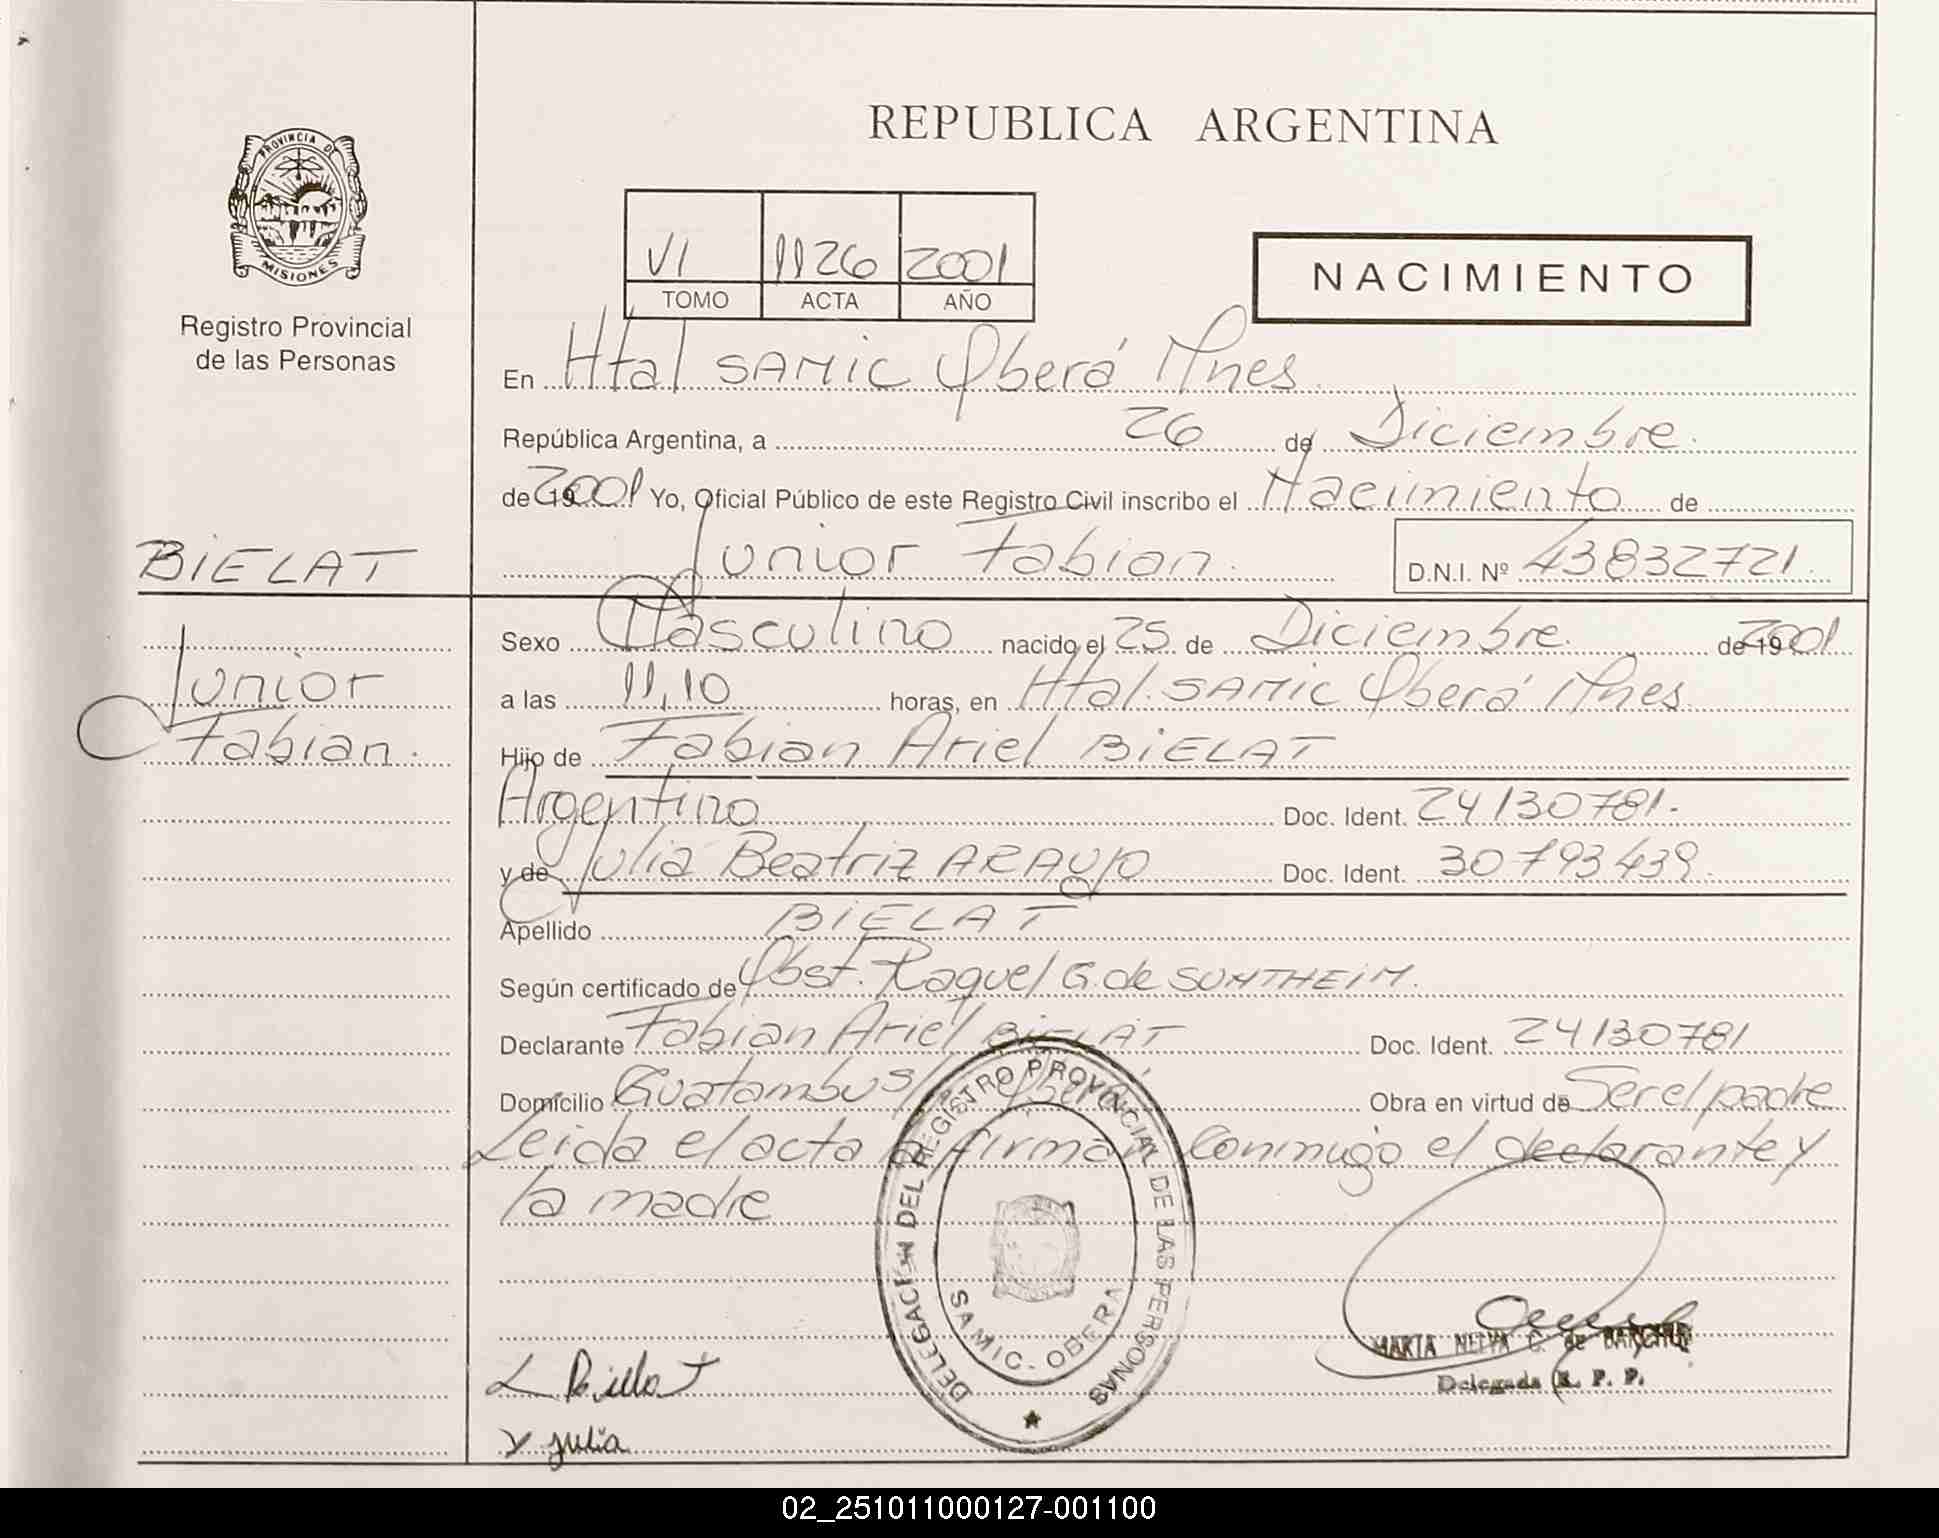 REPUBLICA ARGENTINA
PROVINCIA DE
MISIONES
Registro Provincial
de las Personas
VI 1126 2001
TOMO ACTA AÑO
NACIMIENTO
En Htal SAMIC Oberá Mnes
República Argentina, a 26 de Diciembre
de 2001 Yo, Oficial Público de este Registro Civil inscribo el Nacimiento de
BIELAT
Junior Fabian D.N.I. Nº 43832721
Junior
Fabian.
Sexo Masculino nacido el 25 de Diciembre de 19 2001
a las 11,10 horas, en Htal. SAMIC Oberá Mnes
Hijo de Fabian Ariel BIELAT
Argentino Doc. Ident. 24130781.
y de Julia Beatriz ARAUJO Doc. Ident. 30793439.
Apellido BIELAT
Según certificado de Obst. Raquel G. de
Declarante Fabian Ariel BIELAT Doc. Ident. 24130781
Domicilio Guatambu s/ Oberá Obra en virtud de Ser el padre
Leida el acta la firman conmigo el declarante y
la madre
DELEGACION DEL REGISTRO PROVINCIAL DE LAS PERSONAS
SAMIC - OBERA
MARTA NELVA C. de
Delegada R. P. P.
Bielat
y julia
02_251011000127-001100